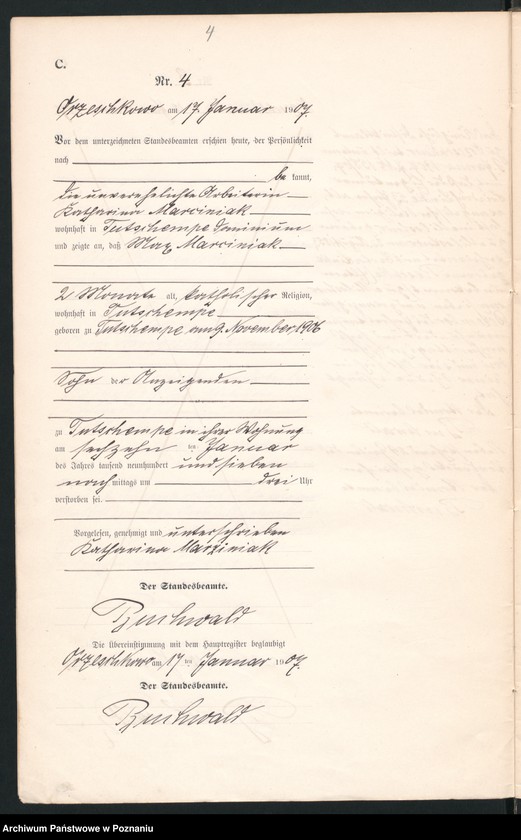 4
C.
Nr. 4
Orzeschkowo am 17. Januar 1907.
Vor dem unterzeichneten Standesbeamten erschien heute, der Persönlichkeit
nach
be kannt,
die unverehelichte Arbeiterin
Katharina Marciniak
wohnhaft in Tutschempe Dominium
und zeigte an, daß Max Marciniak
2 Monate alt, katholischer Religion,
wohnhaft in Tutschempe
geboren zu Tutschempe am 9. November 1906
Sohn der Anzeigenden
zu Tutschempe in ihrer Wohnung
am sechzehn ten Januar
des Jahres tausend neunhundert und sieben
nach mittags um drei Uhr
verstorben sei.
Vorgelesen, genehmigt und unterschrieben
Katharina Marziniak
Der Standesbeamte.
Buchwald
Die Übereinstimmung mit dem Hauptregister beglaubigt
Orzeschkowo am 17 ten Januar 1907.
Der Standesbeamte.
Buchwald
Archiwum Państwowe w Poznaniu